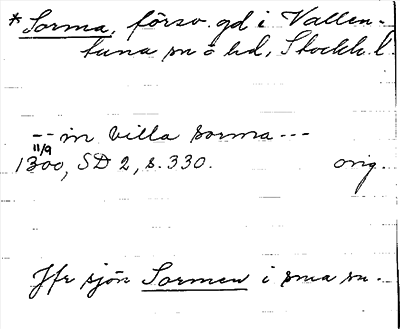 *Sorma, försv. gd i Vallen-
tuna sn o hd, Stockh. l.
-- in villa sorma ---
11/9
1300, SD 2, s. 330. orig.
Jfr sjön Sormen i sma sn.